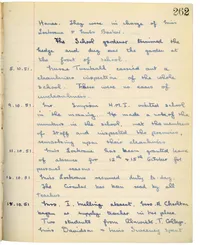 262
House. They were in charge of Miss
Lockhane & Miss Barber.
The School gardeners trimmed the
hedge and dug over the garden at
the front of school.
8.10.81. Nurse Turnbull carried out a
cleanliness inspection of the whole
School. There were no cases of
uncleanliness.
9.10.81. Mr H.M.I. visited school
in the morning. He made a note of the
numbers in the school, and the number
of Staff and inspected the premises,
remarking upon their cleanliness
Miss has been granted leave
of absence for 12th & 13th October for
personal reasons.
14.10.81. Miss resumed duty to-day.
The Circular was read by all
Teachers
19.10.81. Miss I. Milling absent. Mrs A. Charlton
began as supply teacher in her place.
Two students from College.
Miss Davidson & Miss Sweeney spent